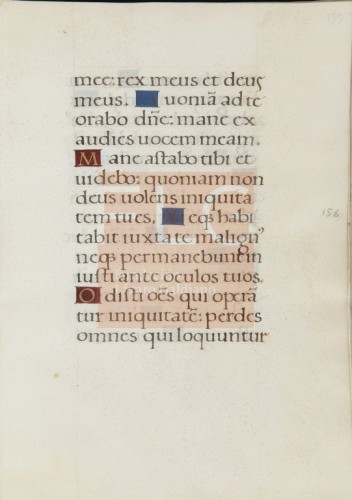 mee: rex meus et deus
meus. Quoniã ad te
orabo dñe: mane ex
audies uocem meam.
Mane astabo tibi et
uidebo: quoniam non
deus uolens iniquita
tem tu es. Neqȝ habi
tabit iuxta te malignꝰ
neqȝ permanebunt in
iusti ante oculos tuos.
Odisti oẽs qui operã
tur iniquitatẽ: perdes
omnes qui loquuntur
156